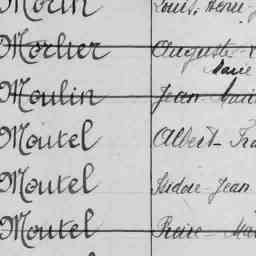 Morin Louis, Henri, J
Morlier Auguste
Marie
Moulin Jean
Moutel Albert
Moutel Isidore Jean
Moutel Pierre